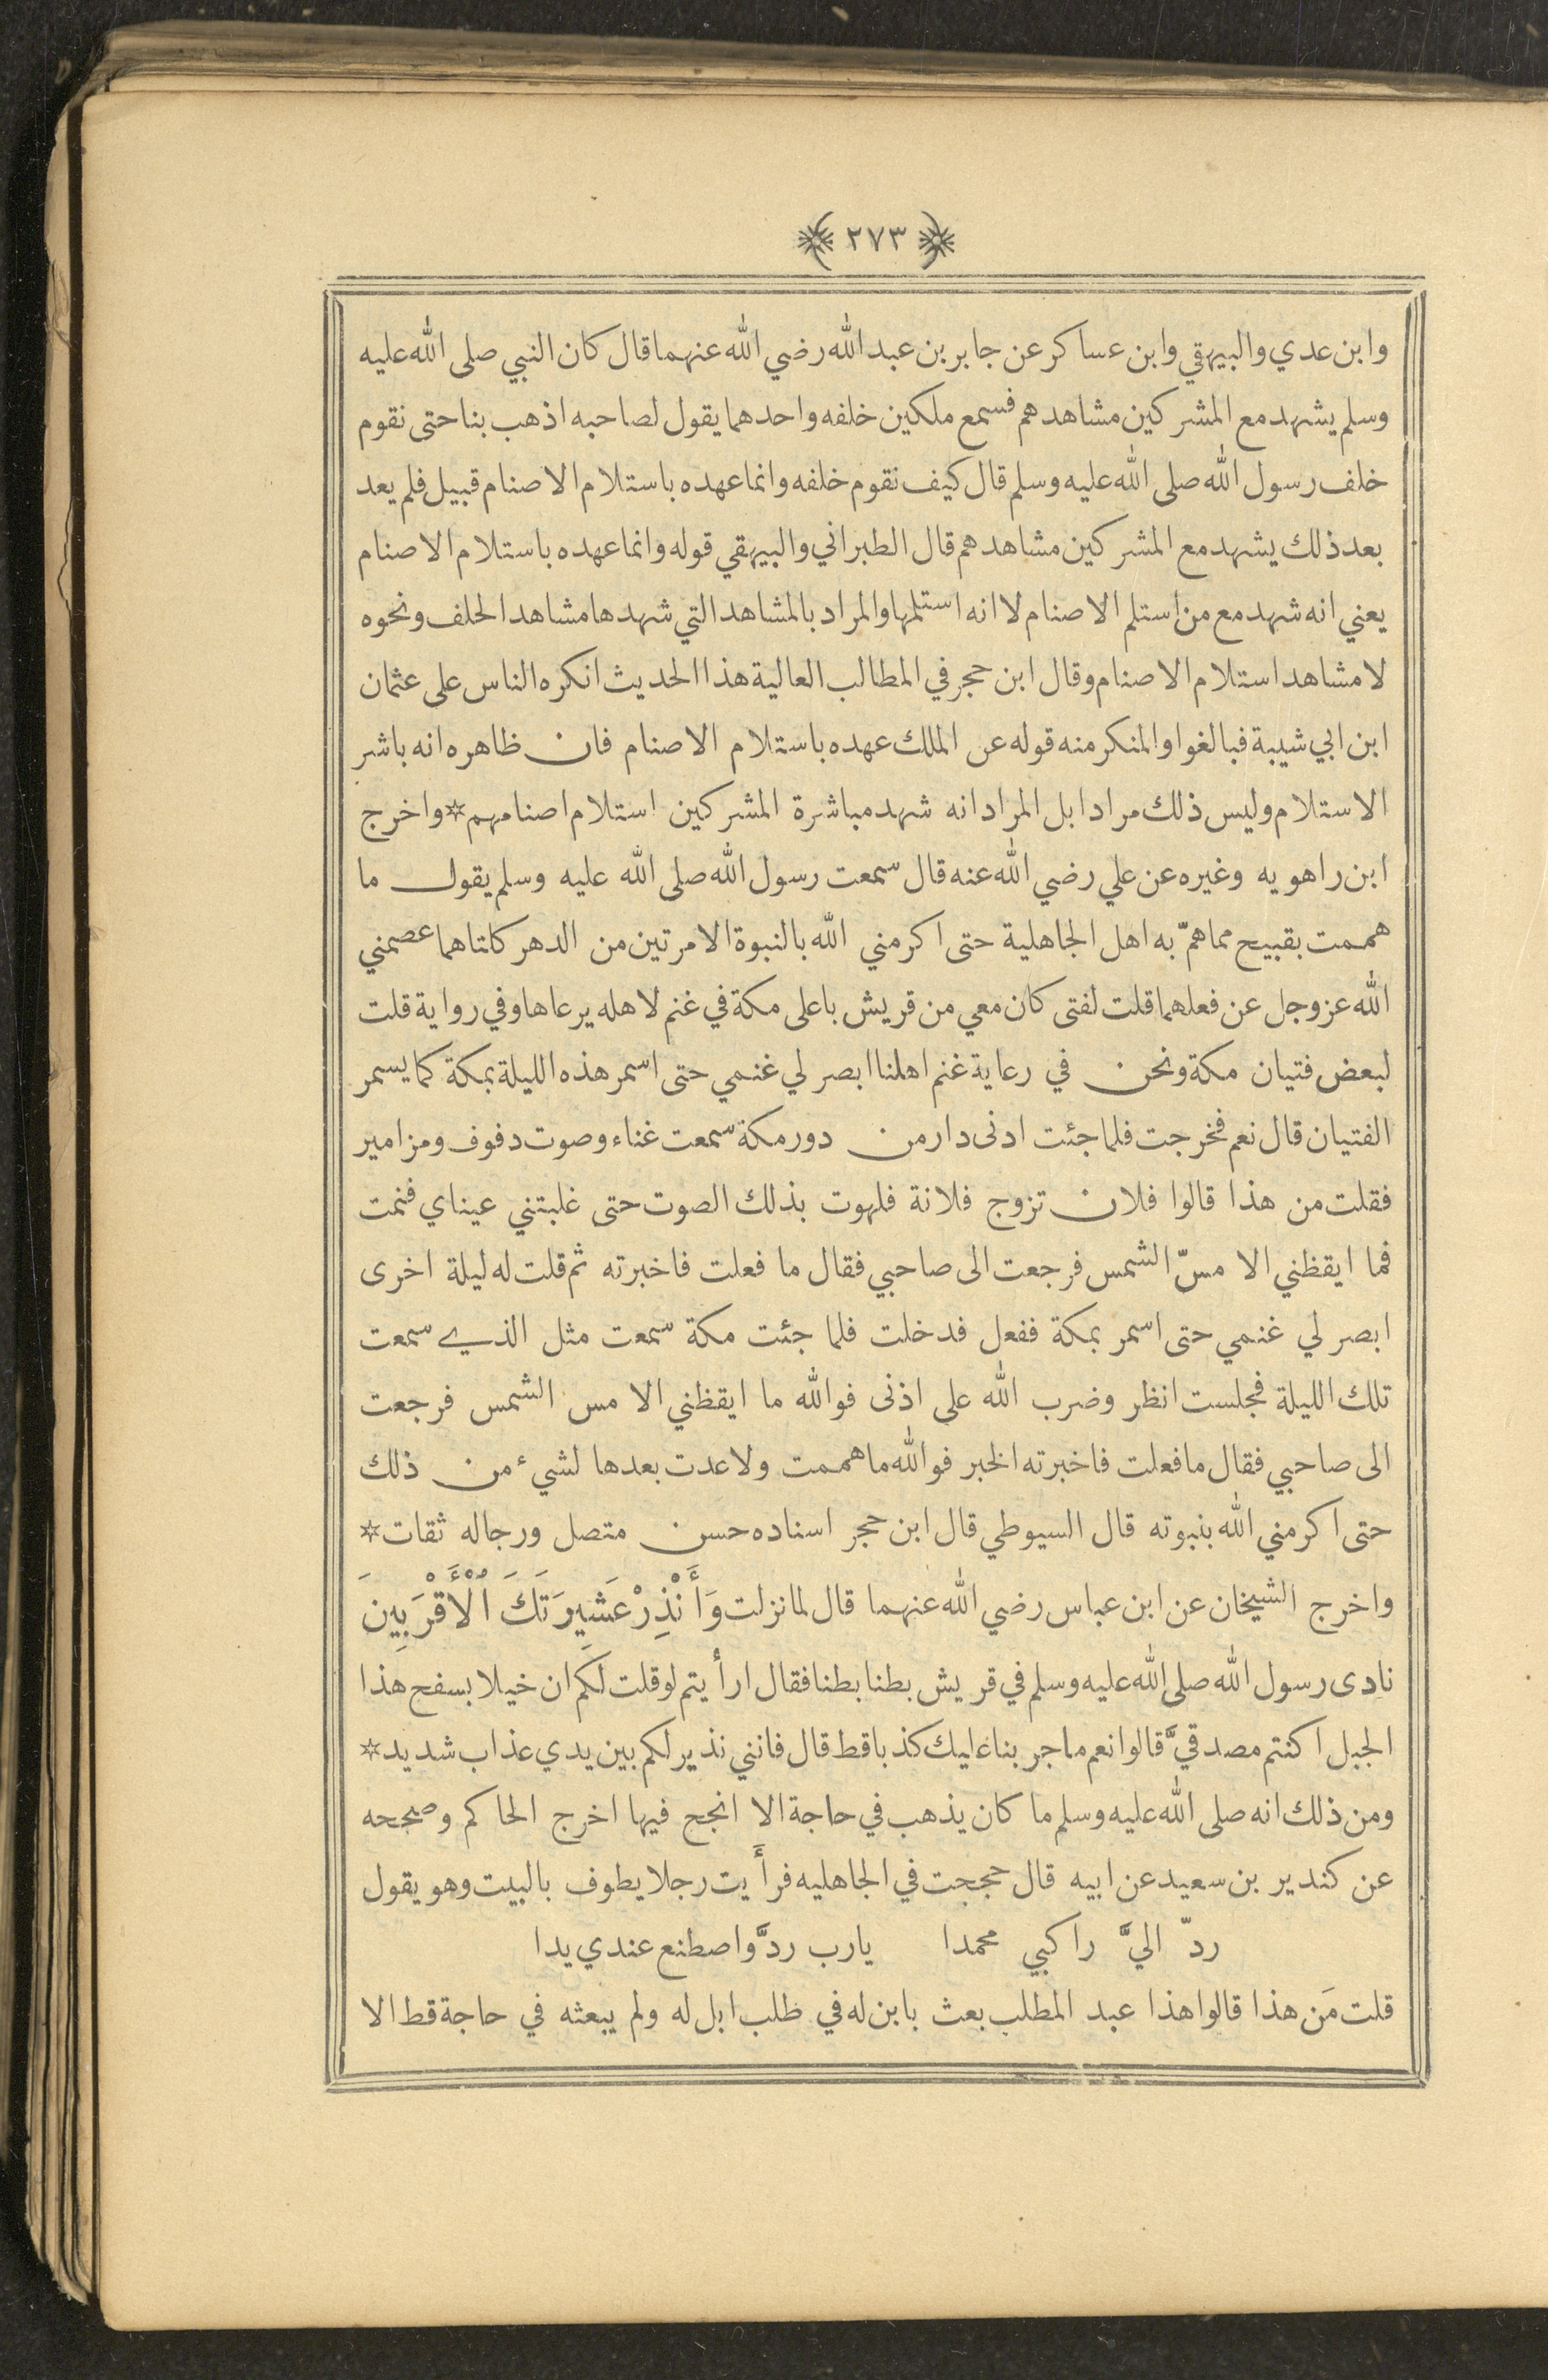 ﴿ ٢٧٣ ﴾
وابن عدي والبيهقي وابن عساكر عن جابر بن عبد الله رضي الله عنهما قال كان النبي صلى الله عليه
وسلم يشهد مع المشركين مشاهدهم فسمع ملكين خلفه واحدهما يقول لصاحبه اذهب بنا حتى نقوم
خلف رسول الله صلى الله عليه وسلم قال كيف نقوم خلفه وانما عهده باستلام الاصنام قبيل فلم يعد
بعد ذلك يشهد مع المشركين مشاهدهم قال الطبراني والبيهقي قوله وانما عهده باستلام الاصنام
يعني انه شهد مع من استلم الاصنام لا انه استلمها والمراد بالمشاهد التي شهدها مشاهد الحلف ونحوه
لا مشاهد استلام الاصنام وقال ابن حجر في المطالب العالية هذا الحديث انكره الناس على عثمان
ابن ابي شيبة فبالغوا والمنكر منه قوله عن الملك عهده باستلام الاصنام فان ظاهره انه باشر
الاستلام وليس ذلك مرادا بل المراد انه شهد مباشرة المشركين استلام اصنامهم * واخرج
ابن راهويه وغيره عن علي رضي الله عنه قال سمعت رسول الله صلى الله عليه وسلم يقول ما
هممت بقبيح مما همّ به اهل الجاهلية حتى اكرمني الله بالنبوة الا مرتين من الدهر كلتاهما عصمني
الله عز وجل عن فعلهما قلت لفتى كان معي من قريش باعلى مكة في غنم لاهله يرعاها وفي رواية قلت
لبعض فتيان مكة ونحن في رعاية غنم اهلنا ابصر لي غنمي حتى اسمر هذه الليلة بمكة كما يسمر
الفتيان قال نعم فخرجت فلما جئت ادنى دار من دور مكة سمعت غناء وصوت دفوف ومزامير
فقلت من هذا قالوا فلان تزوج فلانة فلهوت بذلك الصوت حتى غلبتني عيناي فنمت
فما ايقظني الا مسّ الشمس فرجعت الى صاحبي فقال ما فعلت فاخبرته ثم قلت له ليلة اخرى
ابصر لي غنمي حتى اسمر بمكة ففعل فدخلت فلما جئت مكة سمعت مثل الذي سمعت
تلك الليلة فجلست انظر وضرب الله على اذنى فوالله ما ايقظني الا مس الشمس فرجعت
الى صاحبي فقال ما فعلت فاخبرته الخبر فوالله ما هممت ولا عدت بعدها لشيء من ذلك
حتى اكرمني الله بنبوته قال السيوطي قال ابن حجر اسناده حسن متصل ورجاله ثقات *
واخرج الشيخان عن ابن عباس رضي الله عنهما قال لما نزلت وَأَنْذِرْ عَشِيرَتَكَ ٱلْأَقْرَبِينَ
نادى رسول الله صلى الله عليه وسلم في قريش بطنا بطنا فقال ارأيتم لو قلت لكم ان خيلا بسفح هذا
الجبل اكنتم مصدقيَّ قالوا نعم ما جربنا عليك كذبا قط قال فانني نذير لكم بين يدي عذاب شديد *
ومن ذلك انه صلى الله عليه وسلم ما كان يذهب في حاجة الا انجح فيها اخرج الحاكم وصححه
عن كندير بن سعيد عن ابيه قال حججت في الجاهليه فرأَيت رجلا يطوف بالبيت وهو يقول
ردّ اليَّ راكبي محمدا يارب ردَّ واصطنع عندي يدا
قلت مَن هذا قالوا هذا عبد المطلب بعث بابن له في طلب ابل له ولم يبعثه في حاجة قط الا